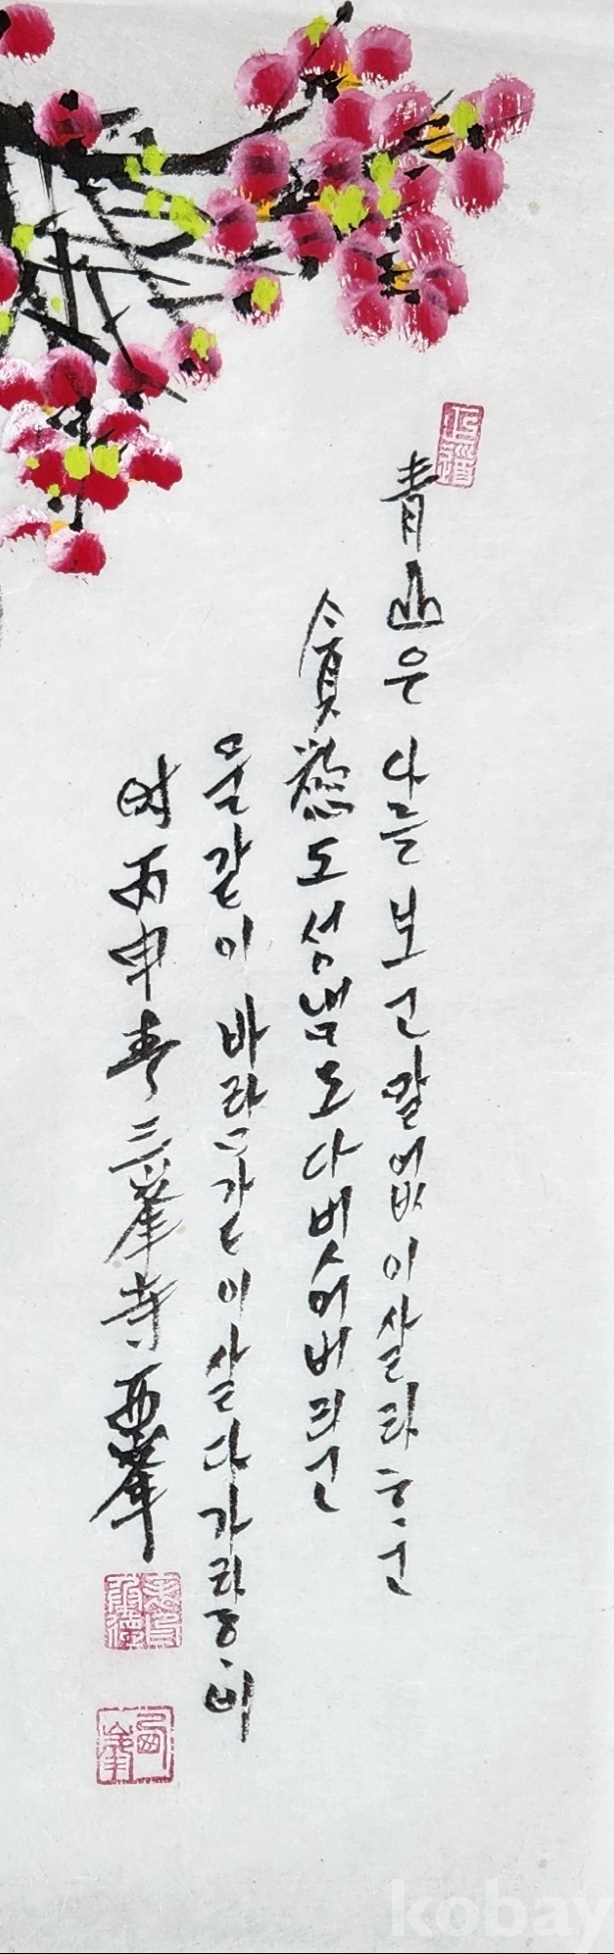 靑山은 나를 보고 말 없이 살라 ᄒᆞ고
貪慾도 성냄도 다 벗어버리고
물같이 바람같이 살다가라 ᄒᆞ네
时 丙申春 三峯寺 西峯
kobay